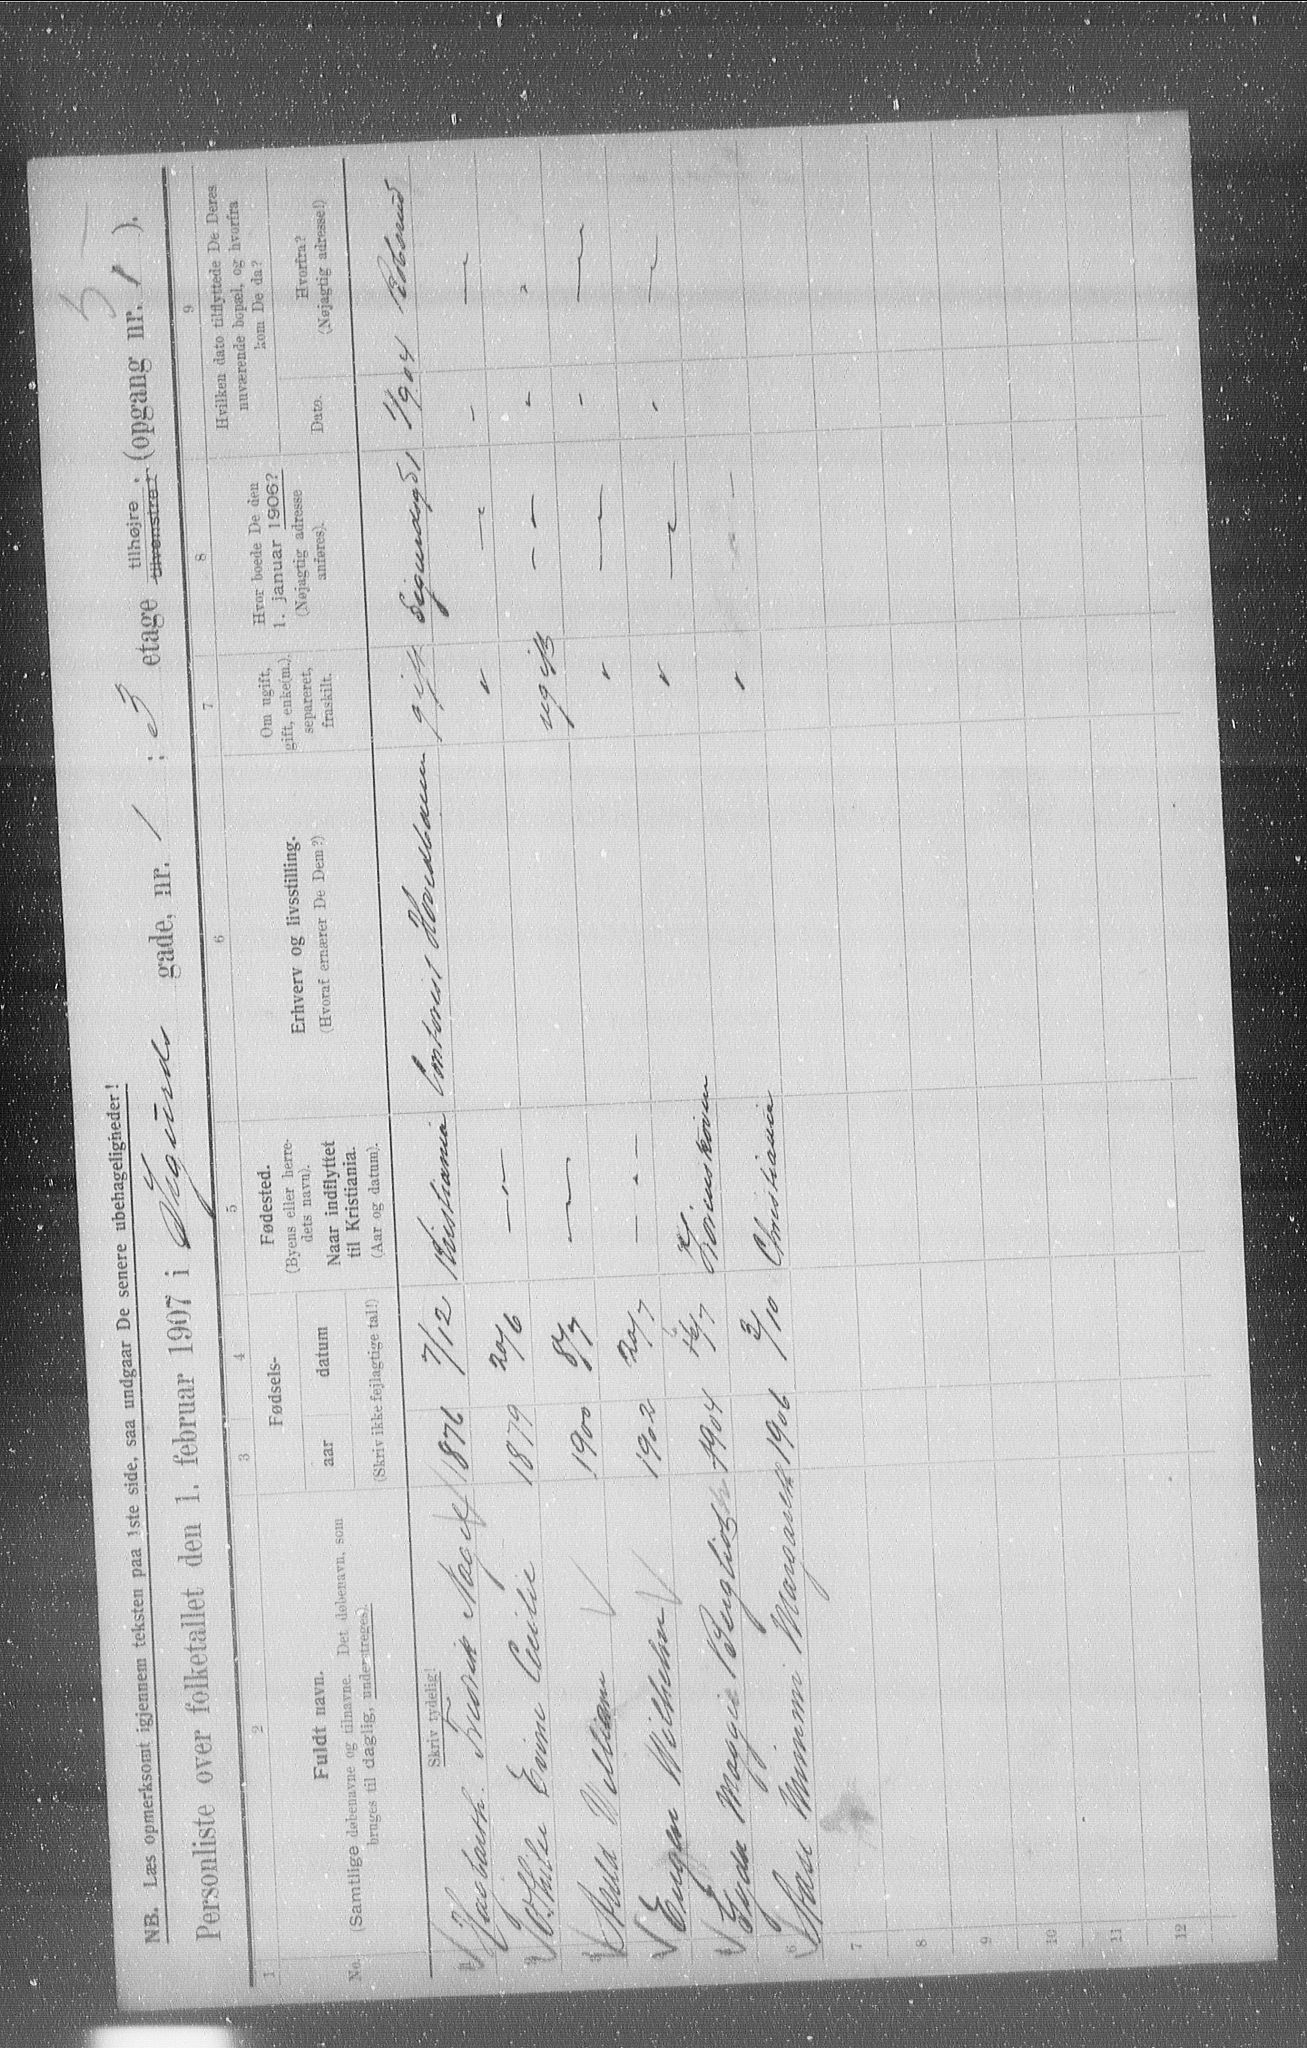 5 —
NB. Læs opmerksomt igjennem teksten paa 1ste side, saa undgaar De senere ubehageligheder!
Personliste over folketallet den 1. februar 1907 i Sigurds gade, nr. 1 ; 3 etage tilhøjre, tilvenstre, (opgang nr. 1 ).
1 2 3 4 5 6 7 8 9
No.
Fuldt navn.
(Samtlige døbenavne og tilnavne. Det døbenavn, som
bruges til daglig, understreges).
Fødsels-
aar datum
(Skriv ikke fejlagtige tal!)
Fødested.
(Byens eller herre-
dets navn).
Naar indflyttet
til Kristiania.
(Aar og datum).
Erhverv og livsstilling.
(Hvoraf ernærer De Dem?)
Om ugift,
gift, enke(m.),
separeret,
fraskilt.
Hvor boede De den
1. januar 1906?
(Nøjagtig adresse
anføres).
Hvilken dato tilflyttede De Deres
nuværende bopæl, og hvorfra
kom De da?
Dato.
Hvorfra?
(Nøjagtig adresse!)
Skriv tydelig!
1876 7/12 Kristiania Contorist Hovedbanen gift Sigurdsgd 1 1/1 904
1879 20/6 — " — " — " — - — " —
1900 8/7 — " — ugift — — - "
Eugen Wilhelm 1902 20/7 — " — " — " — - — " —
Maggie 1904 /7 " — " — - — " —
Mimmi Margarethe 1906 2/10 Christiania " " —
6
7
8
9
10
11
12